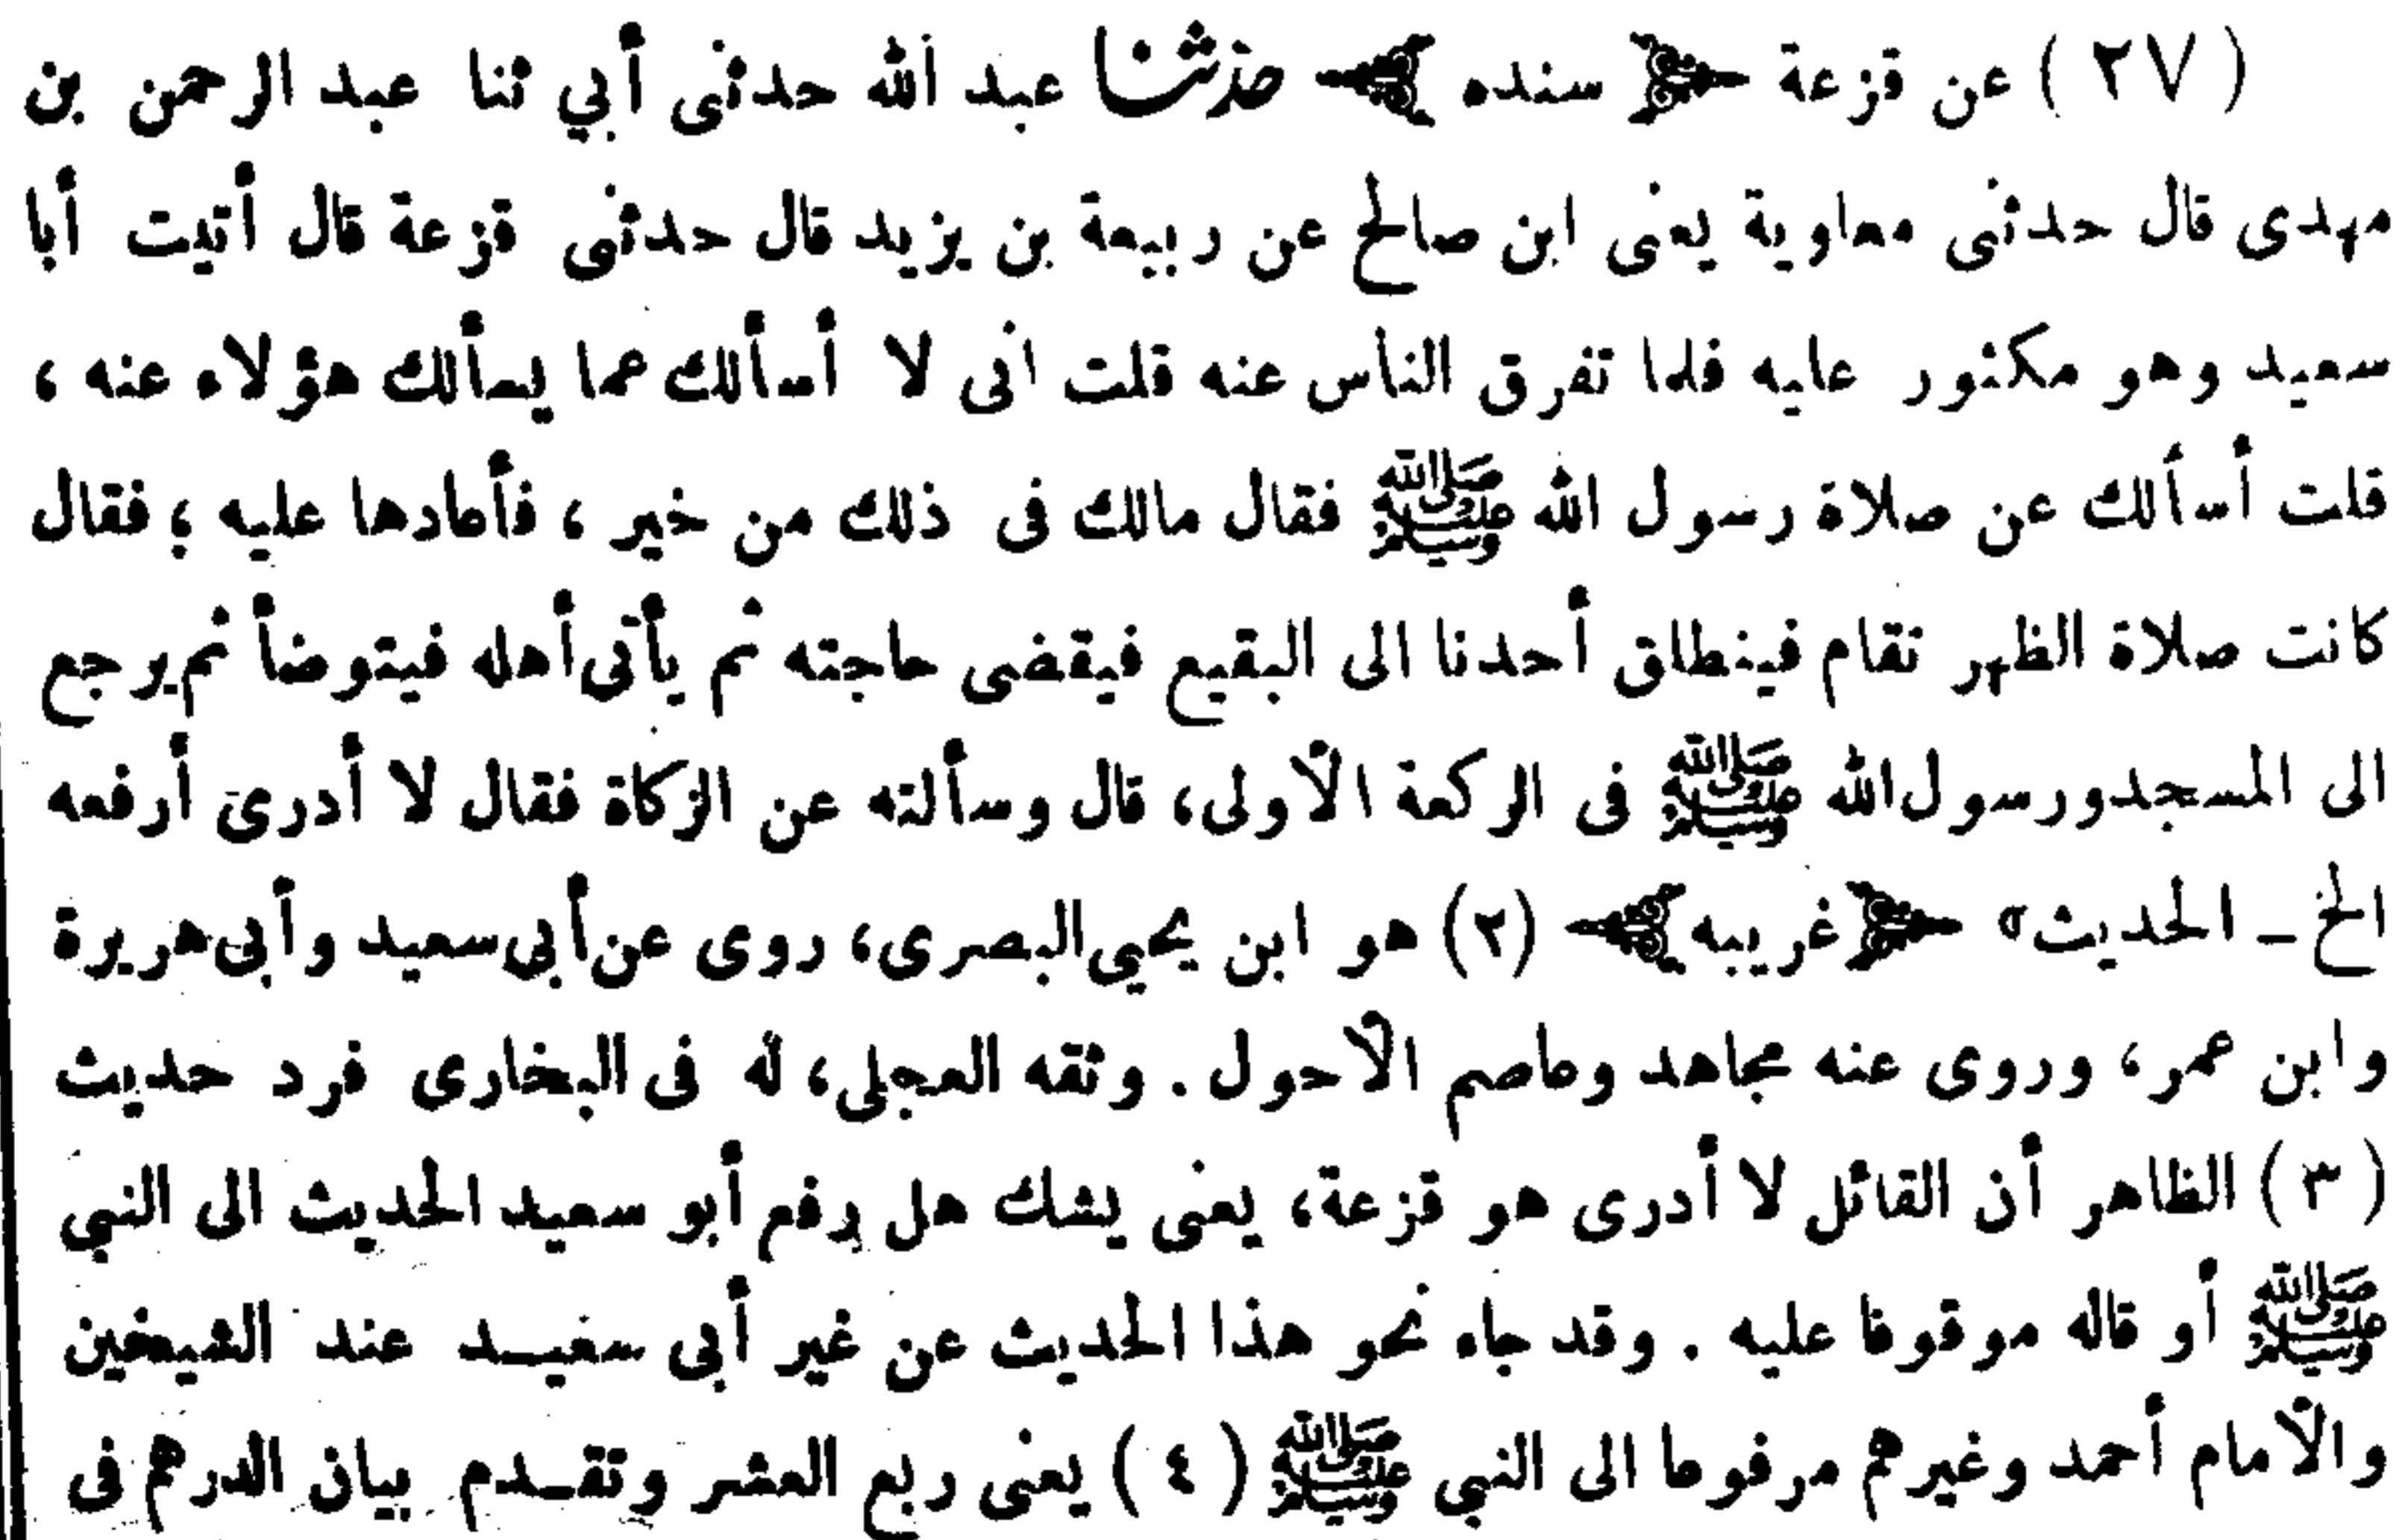 (٢٧) عن قزعة ﴿ سنده ﴾ حدثنا عبد الله حدثنى أبي ثنا عبد الرحمن بن
مهدى قال حدثنى معاوية يعنى ابن صالح عن ربيعة بن يزيد قال حدثنى قزعة قال أتيت أبا
سعيد وهو مكثور عليه فلما تفرق الناس عنه قلت انى لا أسألك عما يسألك هؤلاء عنه ،
قلت أسألك عن صلاة رسول الله ﷺ فقال مالك فى ذلك من خير ، فأعادها عليه ؛ فقال
كانت صلاة الظهر تقام فينطلق أحدنا الى البقيع فيقضى حاجته ثم يأتى أهله فيتوضأ ثم يرجع
الى المسجد ورسول الله ﷺ فى الركعة الأولى، قال وسألته عن الزكاة فقال لا أدرى أرفعه
الخ ــ الحديث» ﴿ غريبه ﴾ (٢) هو ابن يحيى البصرى، روى عن أبي سعيد وأبى هريرة
وابن عمر ، وروى عنه مجاهد وعاصم الأحول . وثقه العجلى، له فى البخارى فرد حديث
(٣) الظاهر أن القائل لا أدرى هو قزعة، يعنى يشك هل رفع أبو سعيد الحديث الى النبى
ﷺ أو قاله موقوفا عليه . وقد جاء نحو هذا الحديث عن غير أبى سعيــد عند الشيخين
والأمام أحمد وغيرهم مرفوعا الى النبي ﷺ (٤) يعنى ربع العشر وتقــدم بيان الدرهم فى